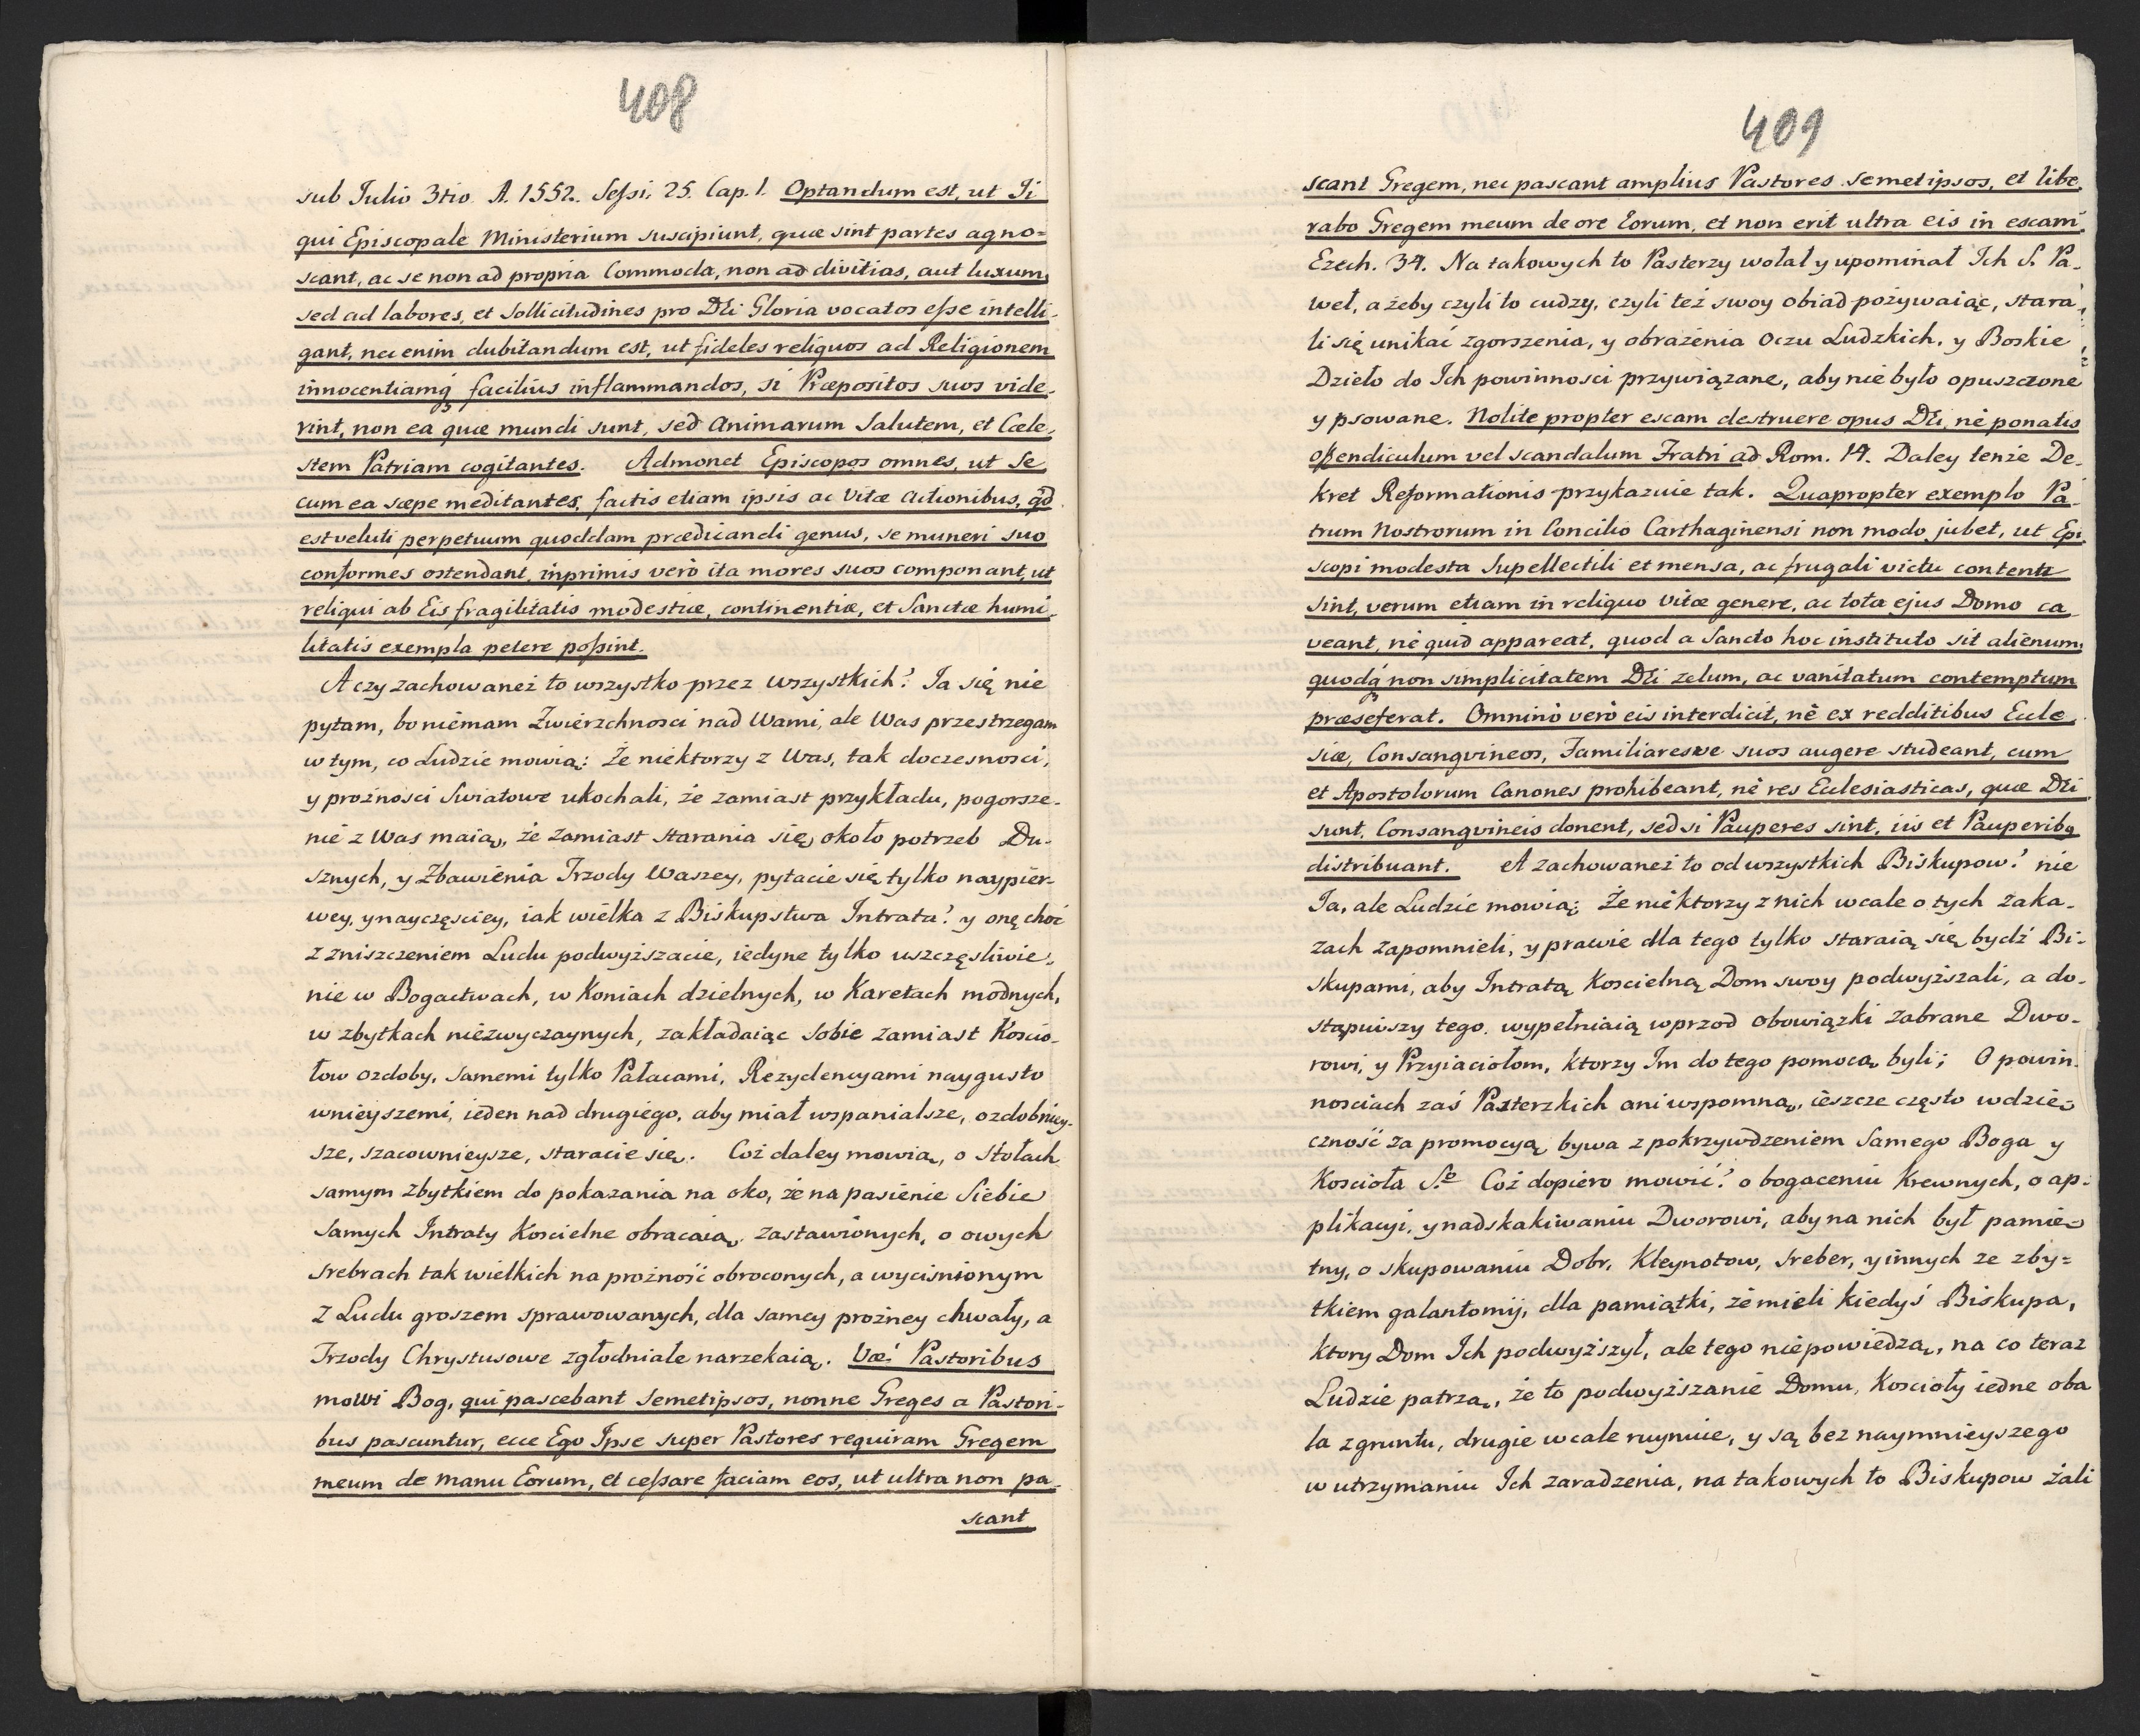 408
sub Julio 3tio. A. 1552. Sessi. 25. Cap. 1. Optandum est, ut Ii
qui Episcopale Ministerium suscipiunt, quæ sint partes agno=
scant, ac se non ad propria Commoda, non ad divitias, aut luxum,
sed ad labores, et Sollicitudines pro Dei Gloria vocatos esse intelli-
gant, nec enim dubitandum est, ut fideles reliquos ad Religionem
innocentiamq; facilius inflammandos, si Præpositos suos vide-
rint, non ea quæ mundi sunt, sed Animarum Salutem, et Cæle-
stem Patriam cogitantes. Admonet Episcopos omnes, ut Se-
cum ea sæpe meditantes, factis etiam ipsis ac Vitæ Actionibus, qd
est veluti perpetuum quoddam prædicandi genus, se muneri suo
conformes ostendant, inprimis verò ita mores suos componant, ut
reliqui ab Eis fragilitatis modestiæ, continentiæ, et Sanctæ humi-
litatis exempla petere possint.
A czy zachowaneż to wszystko przez wszystkich? Ja się nie
pytam, bo niemam Zwierzchnosci nad Wami, ale Was przestrzegam
w tym, co Ludzie mowią: Że niektorzy z Was, tak doczesnosci,
y prożnosci Swiatowe ukochali, że zamiast przykładu, pogorsze-
nie z Was maią, że zamiast starania się około potrzeb Du-
sznych, y Zbawienia Trzody Waszey, pytacie się tylko naypier-
wey, y nayczęsciey, iak wielka z Biskupstwa Intrata? y onę choć
z zniszczeniem Ludu podwyższacie, iedyne tylko uszczęsliwie-
nie w Bogactwach, w Koniach dzielnych, w Karetach modnych,
w zbytkach niezwyczaynych, zakładaiąc sobie zamiast Koscio-
łow ozdoby, samemi tylko Pałacami, Rezydencyami naygusto
wnieyszemi, ieden nad drugiego, aby miał wspanialsze, ozdobniey-
sze, szacownieysze, staracie się. Coż daley mowią, o Stołach
samym zbytkiem do pokazania na oko, że na pasienie Siebie
Samych Intraty Koscielne obracaią, zastawionych, o owych
srebrach tak wielkich na prożność obroconych, a wycisnionym
z Ludu groszem sprawowanych, dla samey prożney chwały, a
Trzody Chrystusowe zgłodniałe narzekaią. Væ! Pastoribus
mowi Bog, qui pascebant Semetipsos, nonne Greges a Pastori-
bus pascuntur, ecce Ego Ipse super Pastores requiram Gregem
meum de manu Eorum, et cessare faciam eos, ut ultra non pa-
scant
409
scant Gregem, nec pascant amplius Pastores semetipsos, et libe-
rabo Gregem meum de ore Eorum, et non erit ultra eis in escam.
Ezech. 34. Na takowych to Pasterzy wołał y upominał Ich S. Pa-
weł, ażeby czyli to cudzy, czyli też swoy obiad pożywaiąc, stara-
li się unikać zgorszenia, y obrażenia Oczu Ludzkich, y Boskie
Dzieło do Ich powinnosci przywiązane, aby nie było opuszczone
y psowane. Nolite propter escam destruere opus Dei, nè ponatis
offendiculum vel scandalum Fratri ad Rom. 14. Daley tenże De-
kret Reformationis przykazuie tak. Quapropter exemplo Pa-
trum Nostrorum in Concilio Carthaginensi non modo jubet, ut Epi-
scopi modesta Supellectili et mensa, ac frugali victu contenti
sint, verum etiam in reliquo Vitæ genere, ac tota ejus Domo ca
veant, nè quid appareat, quod a Sancto hoc instituto sit alienum,
quodq; non simplicitatem Dei zelum, ac vanitatum contemptum
præseferat. Omninò verò eis interdicit, nè ex redditibus Eccle-
siæ, Consangvineos, Familiaresve suos augere studeant, cum
et Apostolorum Canones prohibeant, nè res Ecclesiasticas, quæ Dei
sunt, Consangvineis donent, sed si Pauperes sint, iis et Pauperibq
distribuant. A zachowaneż to od wszystkich Biskupow? nie
Ja, ale Ludzie mowią: Że niektorzy z nich wcale o tych zaka-
zach zapomnieli, y prawie dla tego tylko staraią się bydź Bi-
skupami, aby Intratą Koscielną Dom swoy podwyższali, a do-
stąpiwszy tego, wypełniaią wprzod obowiązki zabrane Dwo-
rowi, y Przyiaciołom, ktorzy Im do tego pomocą byli; O powin-
nosciach zaś Pasterzkich ani wspomną, ieszcze często wdzię-
czność za promocyą bywa z pokrzywdzeniem Samego Boga y
Koscioła S.o Coż dopiero mowić? o bogaceniu Krewnych, o ap-
plikacyi, y nadskakiwaniu Dworowi, aby na nich był pamię-
tny, o skupowaniu Dobr, Kleynotow, sreber, y innych ze zby=
tkiem galantomij, dla pamiątki, że mieli kiedyś Biskupa,
ktory Dom Ich podwyższył, ale tego niepowiedzą, na co teraz
Ludzie patrzą, że to podwyższanie Domu, Koscioły iedne oba
la z gruntu, drugie wcale ruynuie, y są bez naymnieyszego
w utrzymaniu Ich zaradzenia, na takowych to Biskupow żali